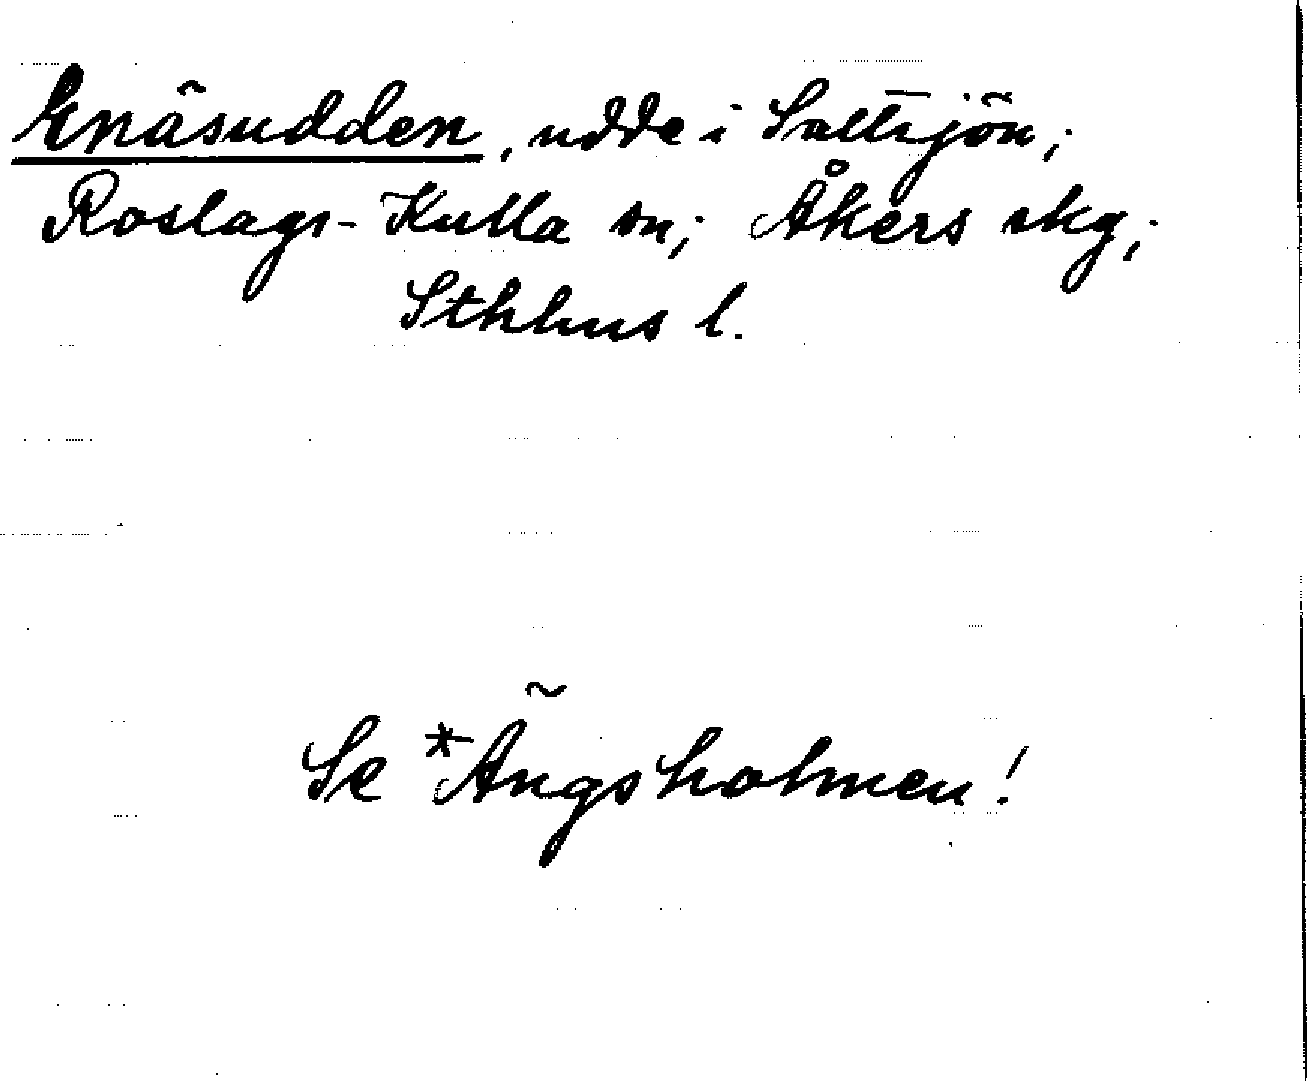 Enäsudden, udde i Saltsjön;
Roslags-Kulla sn; Åkers skg;
Sthlms l.
Se *Ängsholmen!